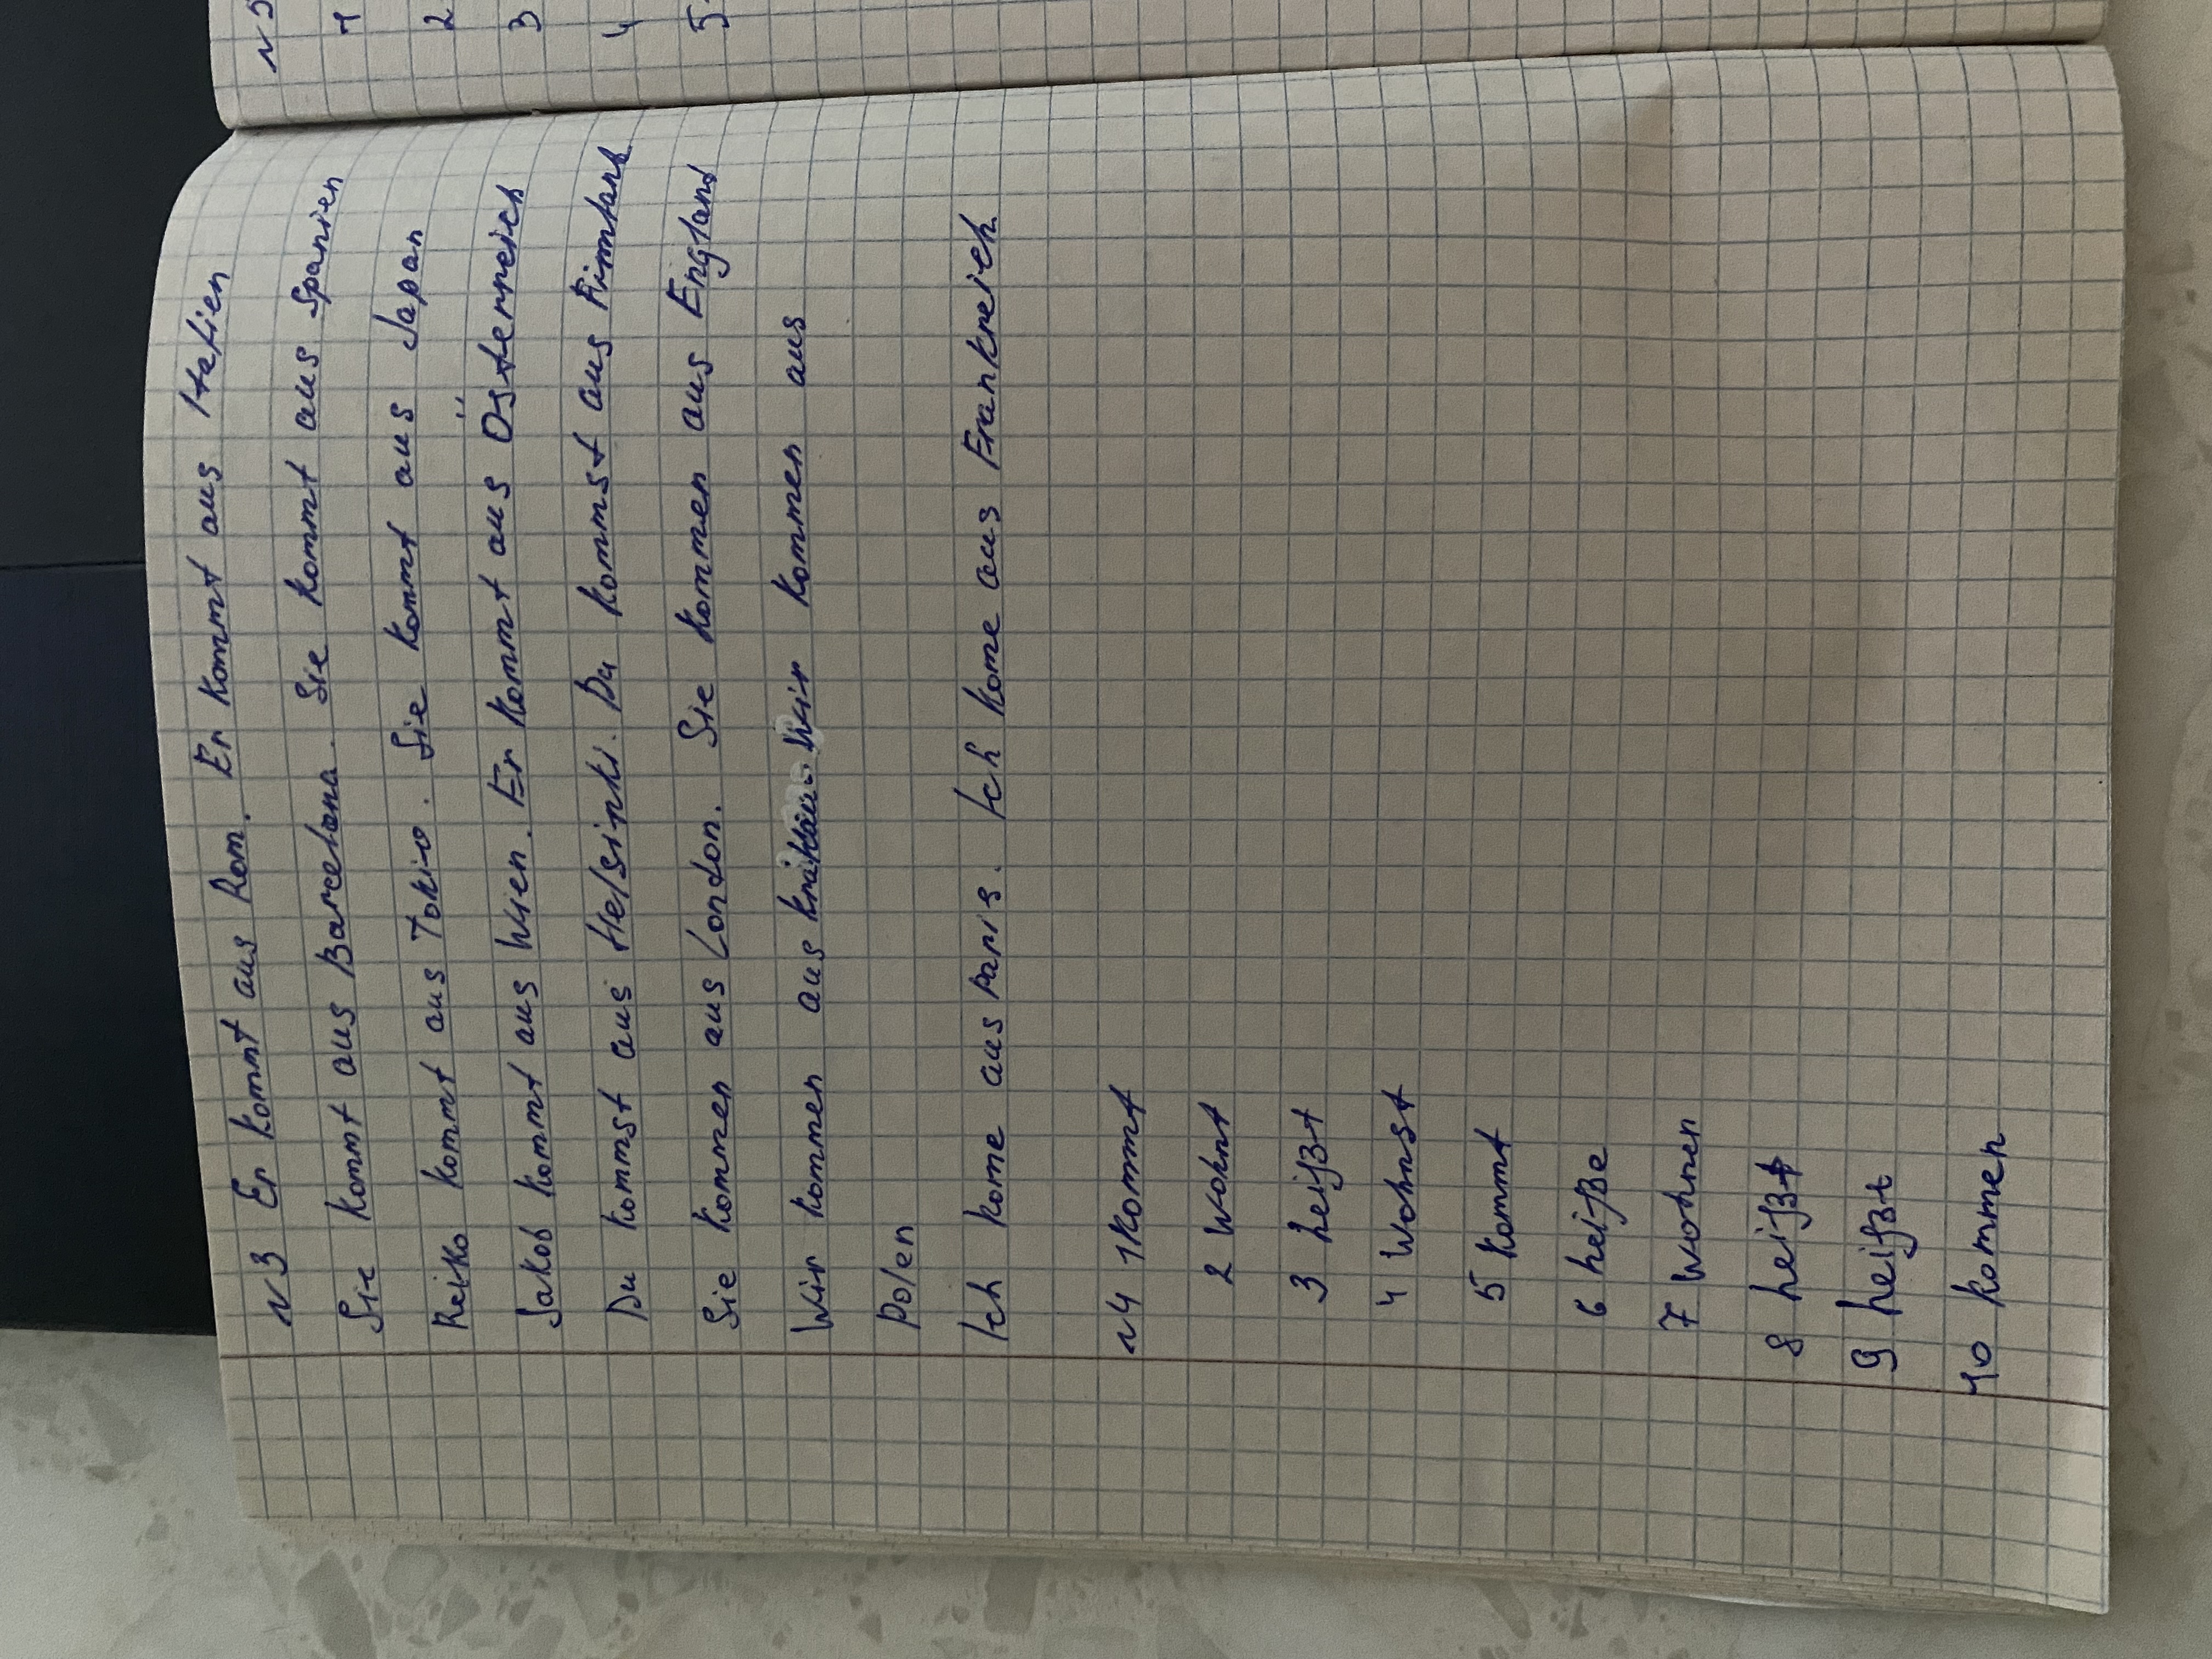 N3 Er kommt aus Rom. Er kommt aus Italien
Sie kommt aus Barcelona. Sie kommt aus Spanien
Reiko kommt aus Tokio. Sie kommt aus Japan
Jakob kommt aus Wien. Er kommt aus Österreich
Du kommst aus Helsinki. Du kommst aus
Sie kommen aus London. Sie kommen aus England
Wir kommen aus Wir kommen aus
Polen
Ich kome aus Paris. Ich kome aus Frankreich
N4 1 kommt
2 wohnt
3 heißt
4 wohnst
5 kommt
6 heiße
7 wohnen
8 heißt
9 heißt
10 kommen
N5
1
2
3
4
5